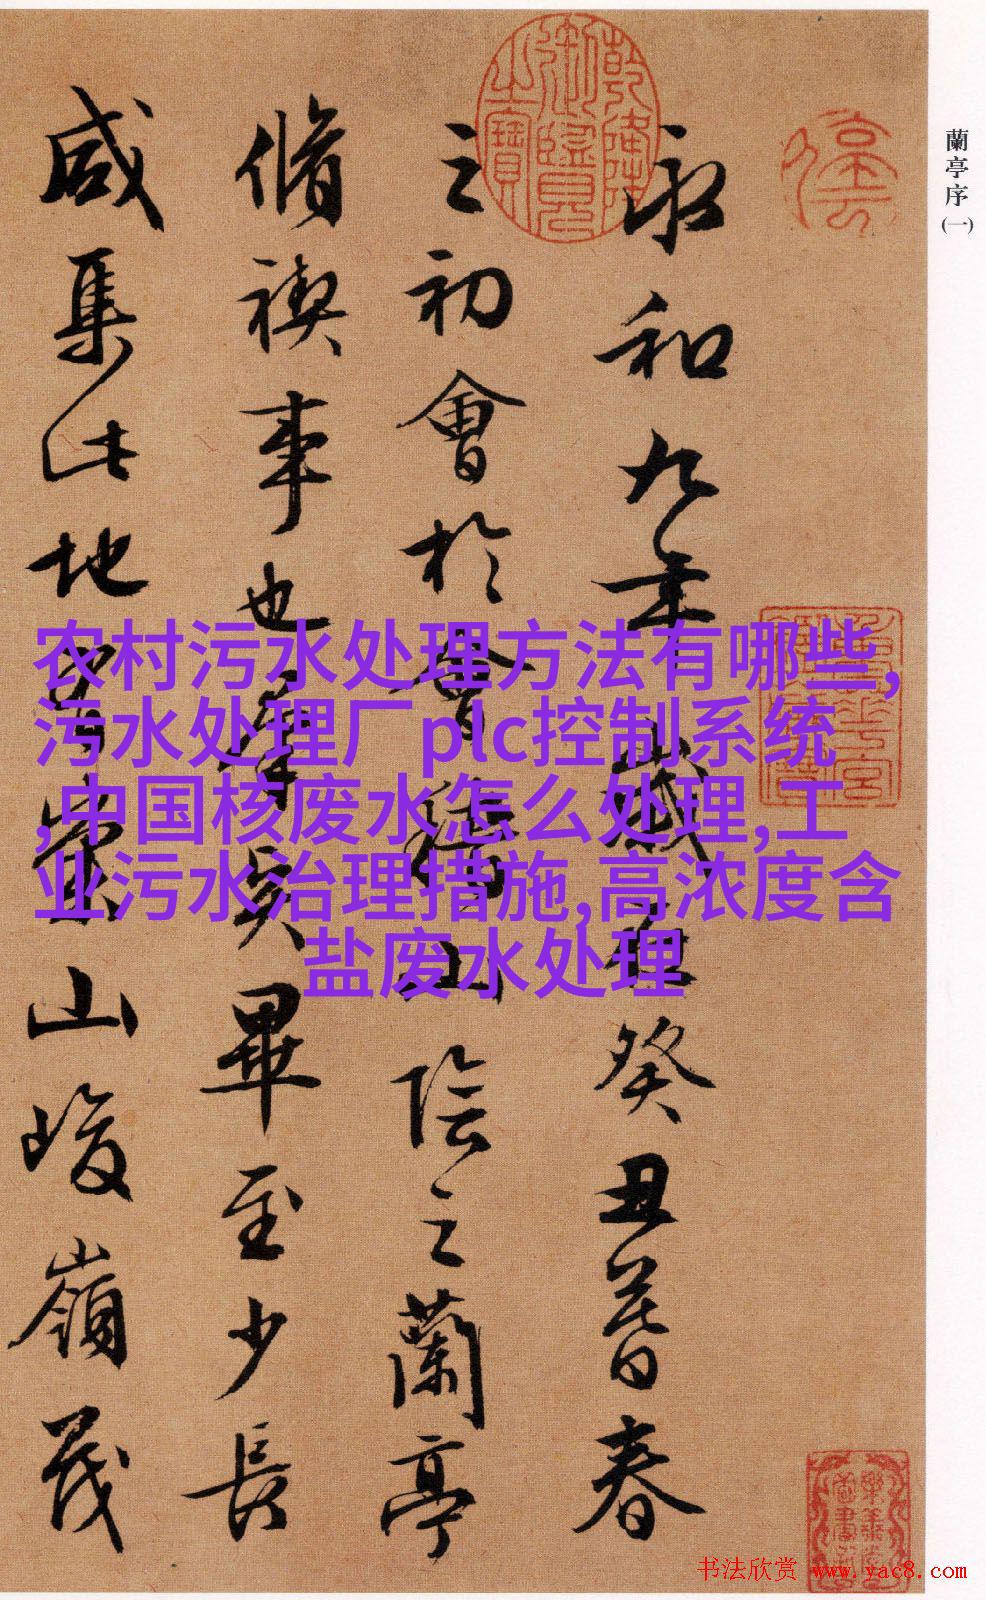 蘭亭序(一)
永和九年歲在癸丑暮春
之初會於會稽山陰之蘭亭
脩禊事也羣賢畢至少長
咸集此地有崇山峻嶺茂
乾隆御覽之寶
农村污水处理方法有哪些,
污水处理厂plc控制系统
,中国核废水怎么处理,工
业污水治理措施,高浓度含
盐废水处理
书法欣赏 www.yac8.com